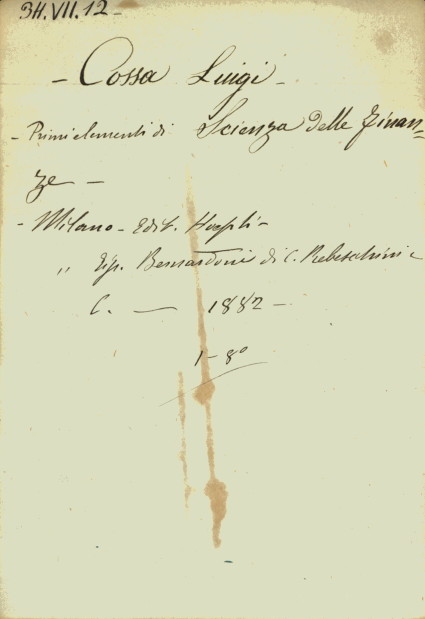 34.VII.12-
- Cossa Luigi -
- Primi elementi di Scienza delle Finan-
ze -
- Milano - Edit. Hoepli -
" Tip. Bernardoni di C. Rebeschini e
C. — 1882 -
1 - 8º